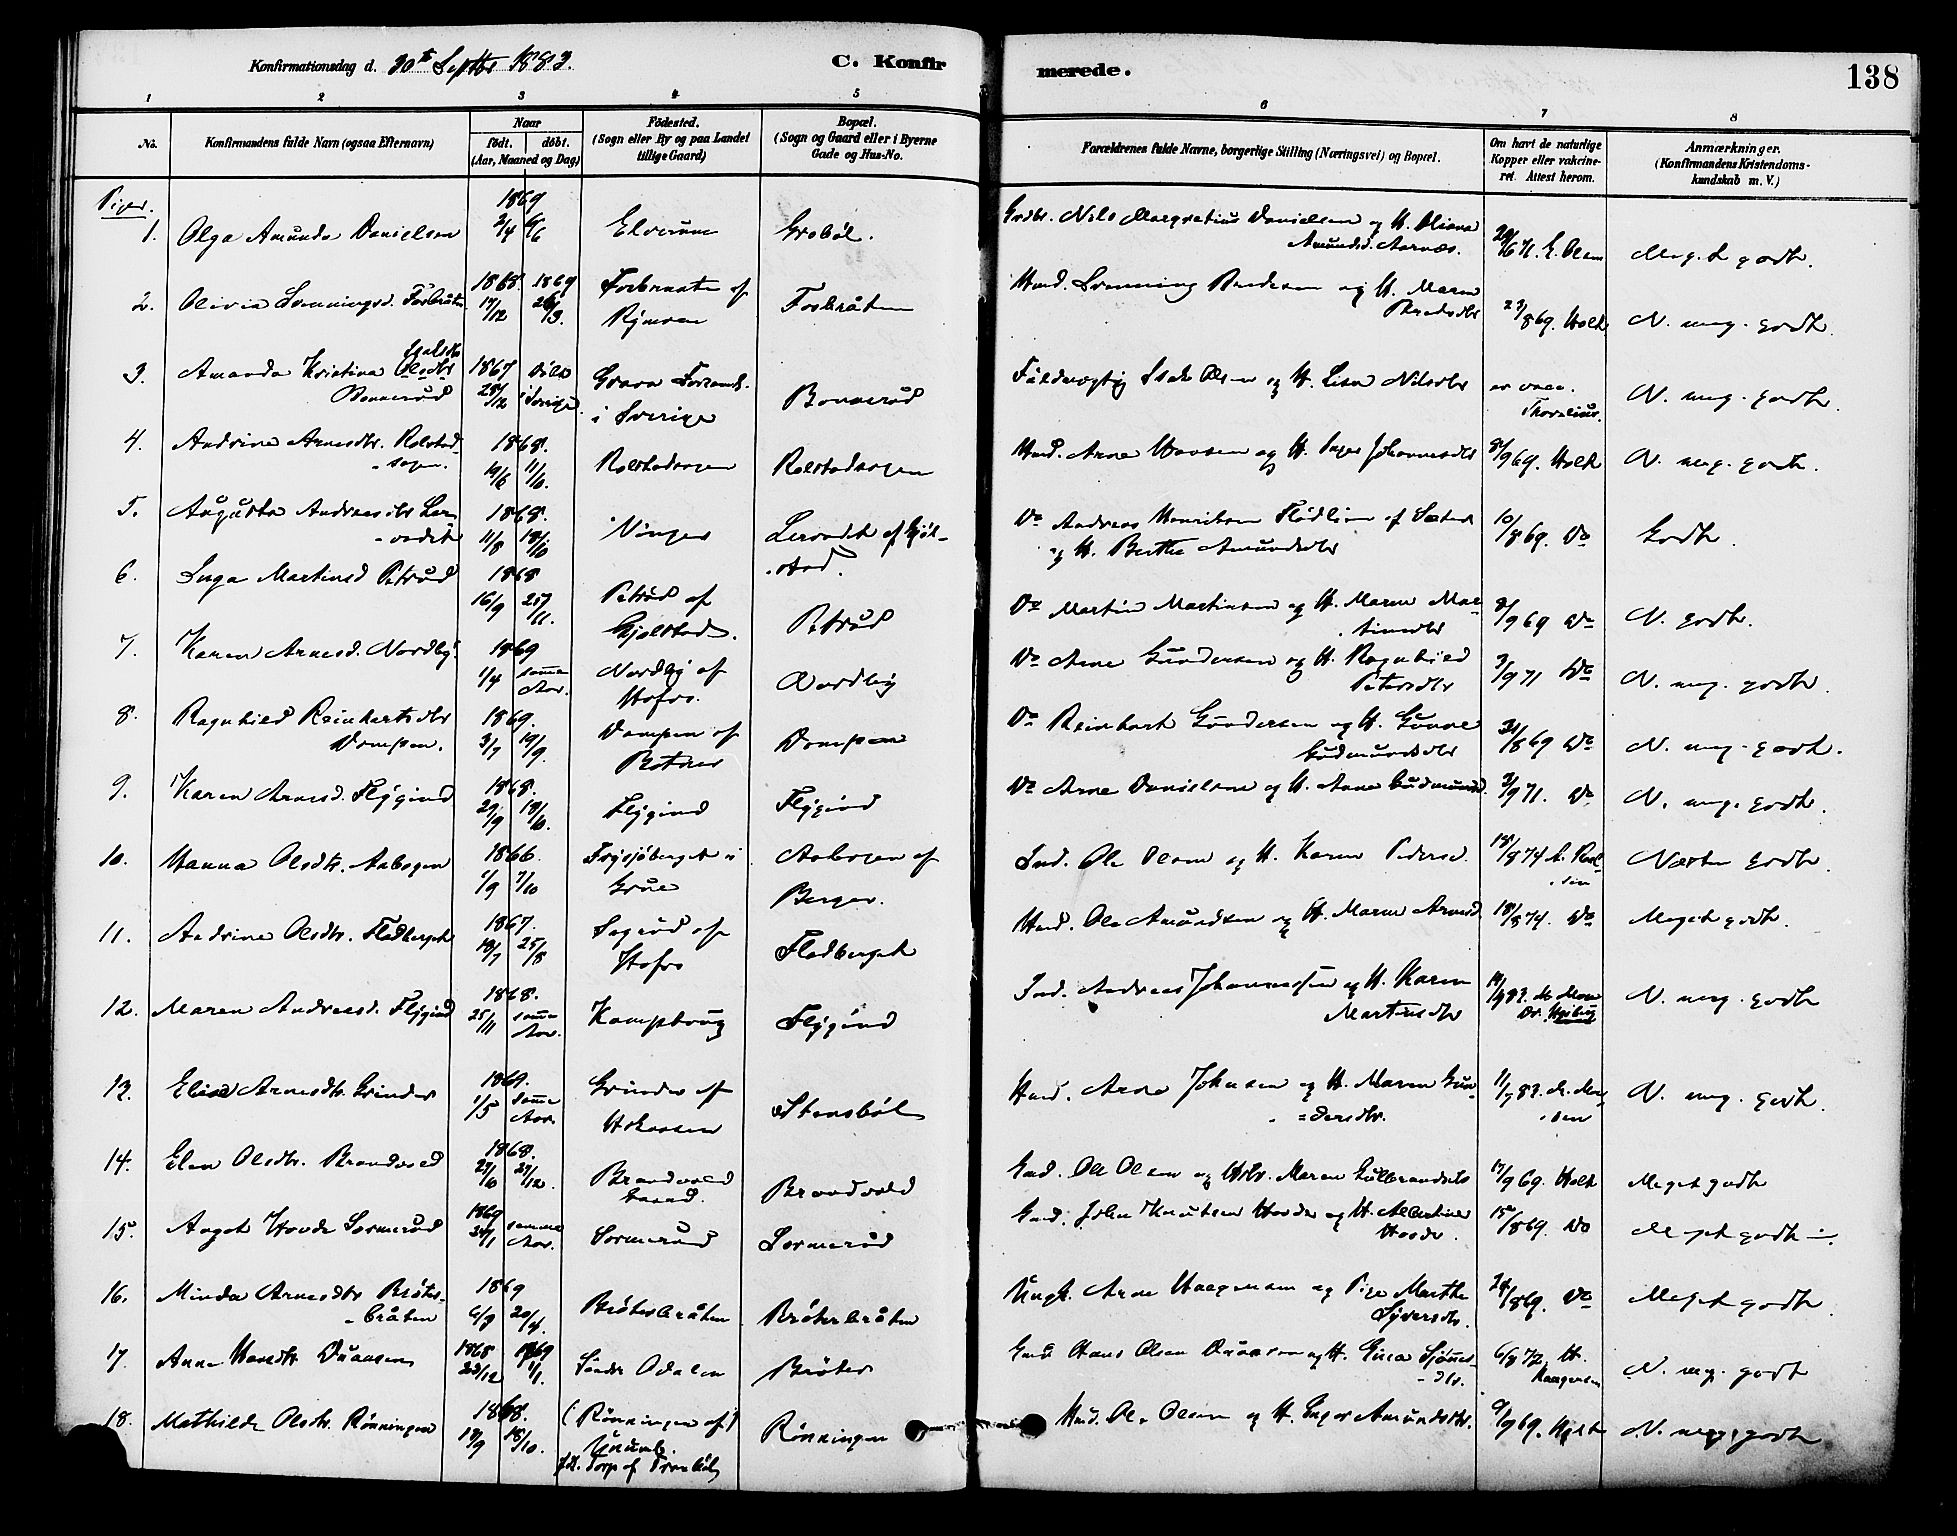 Konfirmationsdag d. 30te Septbr 1883. C. Konfirmerede. 138
1 2 3 4 5 6 7 8
No. Konfirmandens fulde Navn (ogsaa Efternavn) Naar födt. döbt. (Aar, Maaned og Dag) Födested. (Sogn eller By og paa Landet tillige Gaard) Bopæl. (Sogn og Gaard eller i Byerne Gade og Hus-No. Forældrenes fulde Navne, borgerlige Stilling (Næringsvei) og Bopæl. Om havt de naturlige Kopper eller vakcineret. Attest herom. Anmærkninger. (Konfirmandens Kristendomskundskab m. V.)
Piger.
1. Olga Amunda Danielsen 1869 2/4 6/6 Elverum Grøbøl. Grdbr. Nils Margretius Danielsen og H. Oliana Amundsd. Aarnæs. E. Olsen Meget godt.
2. Olivia Svenningsd. Forbråten 1868 17/12 1869 26/3. Forbraaten af Rymoen Forbråten Hmd. Svenning Bredesen og H. Maren Bredsdtr 23/8 69. Holt N. meg. godt.
3. Amanda Kristina Olsdtr Bonnerud 1867 28/12 Döbt i Sverige i Sverige Bonnerud Isak Olsen og H. Lisa Nilsdtr er vacc. N. meg. godt.
4. Andrine Arnesdtr. Rolstadsagen. 1868. 19/6 11/10. Rolstadsagen Rolstadsagen Hmd. Arne Hansen og H. Inger Johannesdtr 8/9 69. Holt N. meg. godt.
5. Augusta Andreasdtr 1868. 11/8 18/10 Vinger Do Andreas Henriksen og H. Berthe Amundsdtr 10/8 69. Do Godt.
6. Inga Martinsd Petrud 1868 16/9 25/11. Petrud af Gjølstad. Petrud Do Martin Martinsen og H. Maren Martinsdtr 8/9 69 Do N. godt.
7. Karen Arnesd. Nordby. 1869 1/4 samme Aar. Nordby af Hofos. Nordby Do Arne Gundersen og H. Ragnhild Petersdtr 3/9 71 Do N. meg. godt.
8. Ragnhild Reinhartsdtr Dompen. 1869. 3/7 19/9. Dompen af Botner Dompen Do Reinhart Gundersen og H. Gunne Gudmundsdtr 31/8 69 Do N. meg. godt.
9. Karen Arnesd. Flygind 1868. 29/9 18/10. Flygind Flygind Do Arne Danielsen og H. Anne Gudmundsd. 3/9 71. Do N. meg. godt.
10. Hanna Olsdtr. Aabogen 1866. 1/9 7/10 Frysjøberget i Grue Aabogen af Berger. Ind. Ole Olsen og H. Karen Pedersd. 18/8 74 Næsten godt.
11. Andrine Olsdtr. Fladberget 1867. 18/7 25/8 Sagerud af Hofos Fladberget Hmd. Ole Amundsen og H. Maren Arnesd. 18/8 74. Do Meget godt.
12. Maren Andreasd. Flygind 1868. 25/11 samme Aar. Kampehaug Flygind Ind. Andreas Johannessen og H. Karen Martinsdtr N. meg. godt
13. Elise Arnesdtr. Grinder 1869. 1/5 samme Aar. Grinder af Stensbøl Hmd. Arne Johnsen og H. Maren Gundersdtr. N. meg. godt.
14. Elen Olsdtr. Brandvold 1868. 29/6 27/12. Brandvold Gaard. Brandvold Gmd. Ole Olsen og Hstr. Maren Gulbrandsdtr 17/9 69. Holt Meget godt
15. Aagot Hovde Sormerud 1869 24/1 samme Aar. Sormerud Sormerud Gmd. John Knutsen Hovde og H. Albertine Hovde. 15/8 69. Do Meget godt.
16. Minda Arnesdtr Bröterbråten 1869 6/3 20/4. Bröterbråten Bröterbråten Ungk. Arne Haagensen og Pige Marthe Syversdtr. 24/8 69. Do Meget godt.
17. Anna Hansdtr Duaasen 1868 23/12 1869 1/1. Søndre Odalen Bröter Gmd Hans Olsen Duaasen og H. Gina 6/8 72. H. Haagensen N. meg. godt
18. Mathilde Olsdtr. Rönningen 1868. 18/9 18/10. (Rönningen af) Rönningen Hmd. Ole Olsen og H. Inger Amundsdtr. 9/9 69. Holt N. meget godt